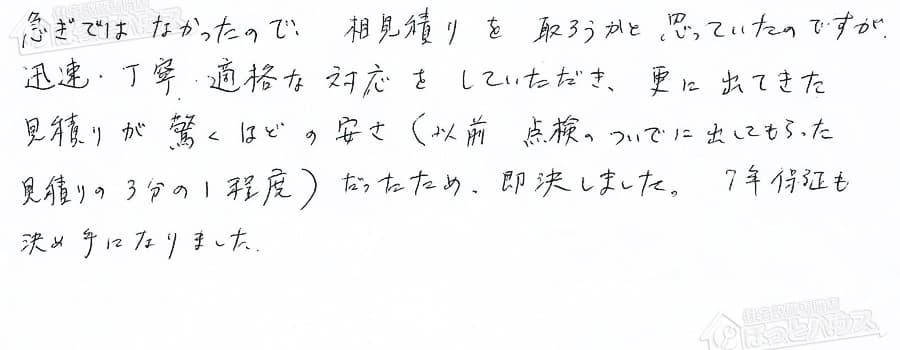 急ぎではなかったので、相見積りを取ろうかと思っていたのですが、
迅速・丁寧・適格な対応をしていただき、更に出てきた
見積りが驚くほどの安さ(以前点検のついでに出してもらった
見積りの3分の1程度)だったため、即決しました。7年保証も
決め手になりました。
住宅設備専門店
ほっとハウス